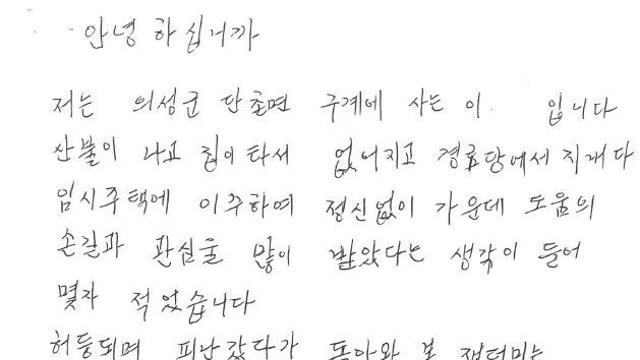 안녕 하십니까
저는 의성군 단촌면 구계에 사는 이. 입니다
산불이 나고 집이 타서 없어지고 경료당에서 지내다
임시주택에 이주하여 정신없이 가운데 도움의
손길과 관심을 많이 받았다는 생각이 들어
몇자 적었습니다
허둥되며 피난갔다가 돌아와 본 잿더미는